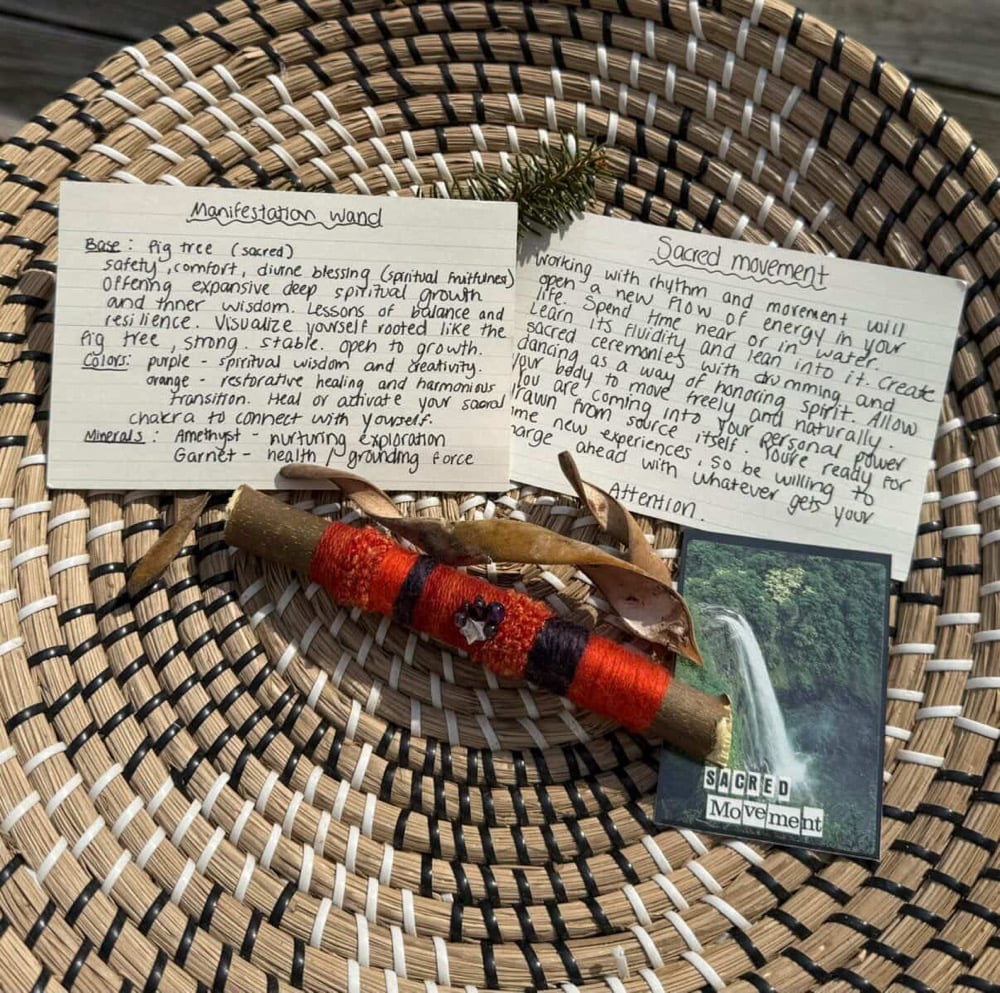 Manifestation wand
Base: fig tree (sacred)
safety, comfort, divine blessing (spiritual fruitfulness)
offering expansive deep spiritual growth
and inner wisdom. Lessons of balance and
resilience. Visualize yourself rooted like the
fig tree, strong. stable. open to growth.
Colors: purple - spiritual wisdom and creativity.
orange - restorative healing and harmonious
transition. Heal or activate your sacral
chakra to connect with yourself.
Minerals: Amethyst - nurturing exploration
Garnet - health / grounding force
Sacred movement
Working with rhythm and movement will
open a new flow of energy in your
life. Spend time near or in water.
Learn its fluidity and lean into it. Create
sacred ceremonies with drumming and
dancing as a way of honoring spirit. Allow
your body to move freely and naturally.
You are coming into your personal power
drawn from source itself. You're ready for
some new experiences, so be willing to
charge ahead with whatever gets your
Attention.
SACRED
Movement